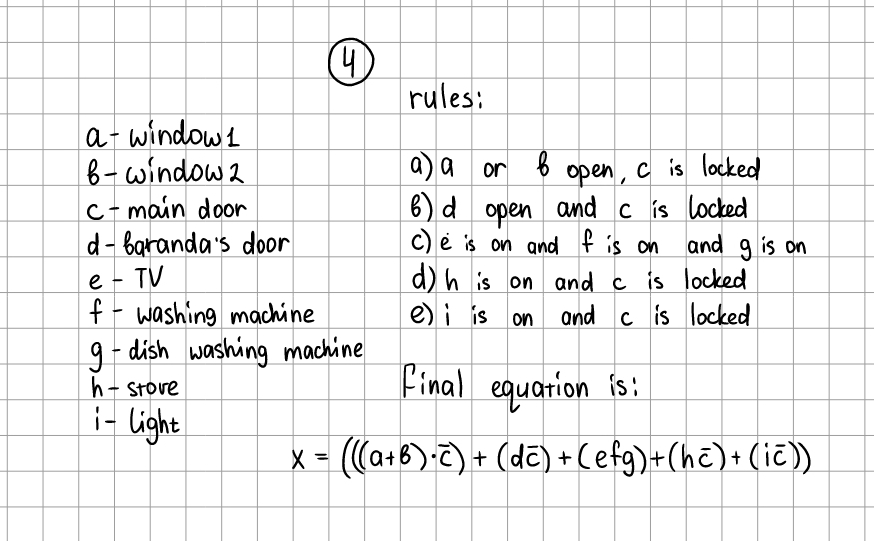 4
rules:
a - window 1
b - window 2
c - main door
d - baranda's door
e - TV
f - washing machine
g - dish washing machine
h - stove
i - light
a) a or b open, c is locked
b) d open and c is locked
c) e is on and f is on and g is on
d) h is on and c is locked
e) i is on and c is locked
final equation is:
x = (((a+b)·c̄) + (dc̄) + (efg) + (hc̄) + (ic̄))